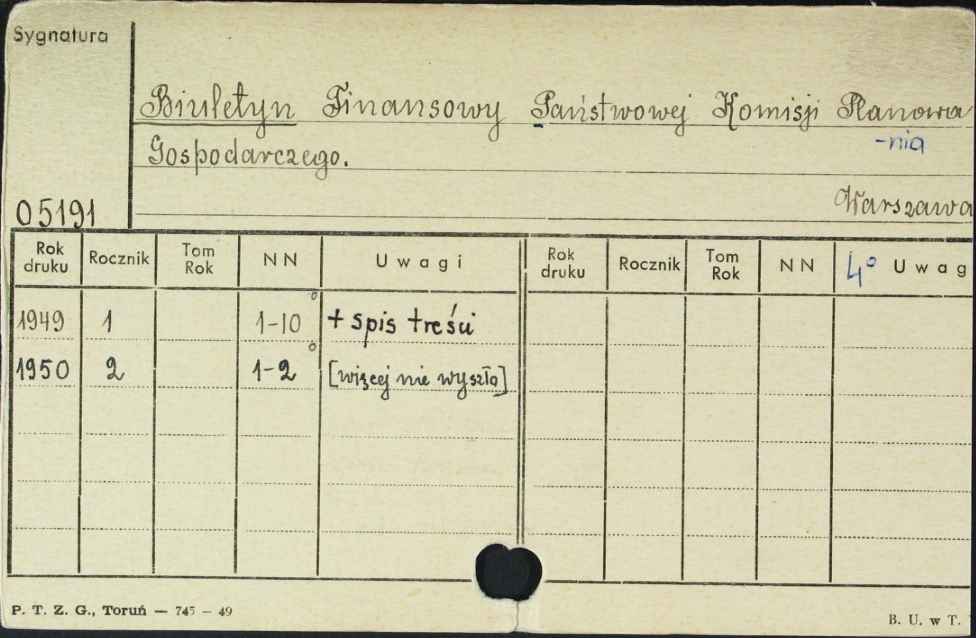 Sygnatura
Biuletyn Finansowy Państwowej Komisji Planowa
-nia
Gospodarczego.
Warszawa
05191
Rok druku Rocznik Tom Rok NN Uwagi Rok druku Rocznik Tom Rok NN 4° Uwag
1949 1 1-10 + spis treści
1950 2 1-2 [więcej nie wyszło]
P. T. Z. G., Toruń — 745 — 49
B. U. w T.